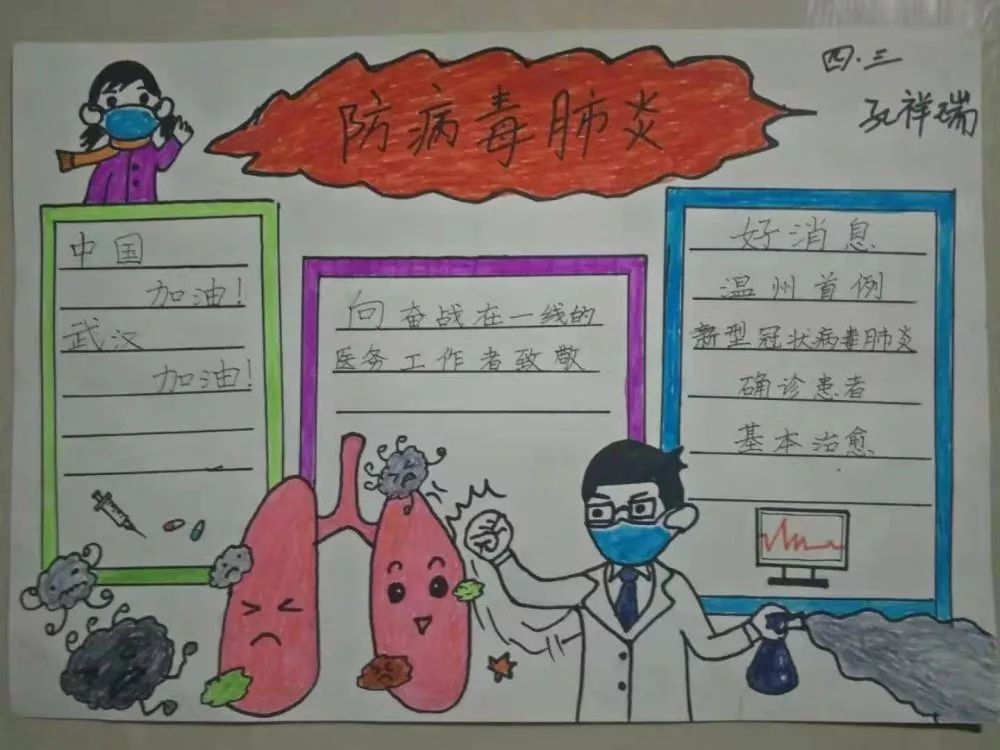 防病毒肺炎
四·三
孔祥瑞
中国
加油!
武汉
加油!
向奋战在一线的
医务工作者致敬
好消息
温州首例
新型冠状病毒肺炎
确诊患者
基本治愈